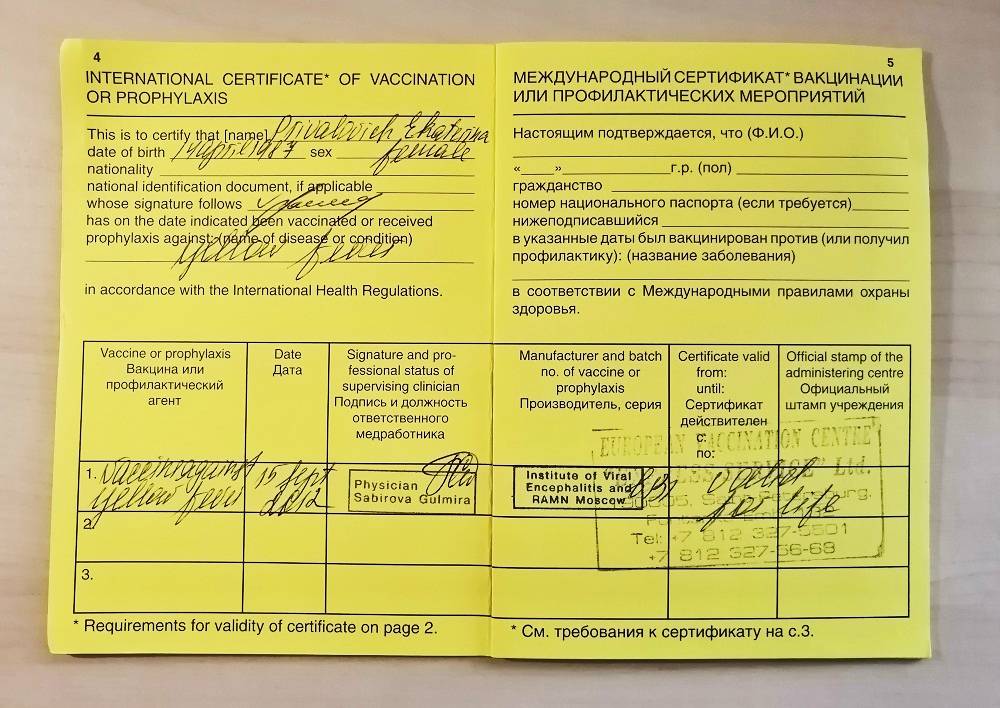 4
INTERNATIONAL CERTIFICATE* OF VACCINATION
OR PROPHYLAXIS
This is to certify that [name] Privalovich Ekaterina
date of birth 14 april 1987 sex female
nationality
national identification document, if applicable
whose signature follows
has on the date indicated been vaccinated or received
prophylaxis against: (name of disease or condition)
yellow fever
in accordance with the International Health Regulations.
5
МЕЖДУНАРОДНЫЙ СЕРТИФИКАТ* ВАКЦИНАЦИИ
ИЛИ ПРОФИЛАКТИЧЕСКИХ МЕРОПРИЯТИЙ
Настоящим подтверждается, что (Ф.И.О.)
«____»____________г.р. (пол)
гражданство
номер национального паспорта (если требуется)
нижеподписавшийся
в указанные даты был вакцинирован против (или получил
профилактику): (название заболевания)
в соответствии с Международными правилами охраны
здоровья.
Vaccine or prophylaxis
Вакцина или
профилактический
агент
Date
Дата
Signature and pro-
fessional status of
supervising clinician
Подпись и должность
ответственного
медработника
Manufacturer and batch
no. of vaccine or
prophylaxis
Производитель, серия
Certificate valid
from:
until:
Сертификат
действителен
с:
по:
Official stamp of the
administering centre
Официальный
штамп учреждения
1. Vaccine against
yellow fever
15 sept
2012
Physician
Sabirova Gulmira
Institute of Viral
Encephalitis and
RAMN Moscow
for life
EUROPEAN VACCINATION CENTRE
Ltd.
Tel: +7 812 327-5501
+7 812 327-56-68
2.
3.
* Requirements for validity of certificate on page 2.
* См. требования к сертификату на с.3.